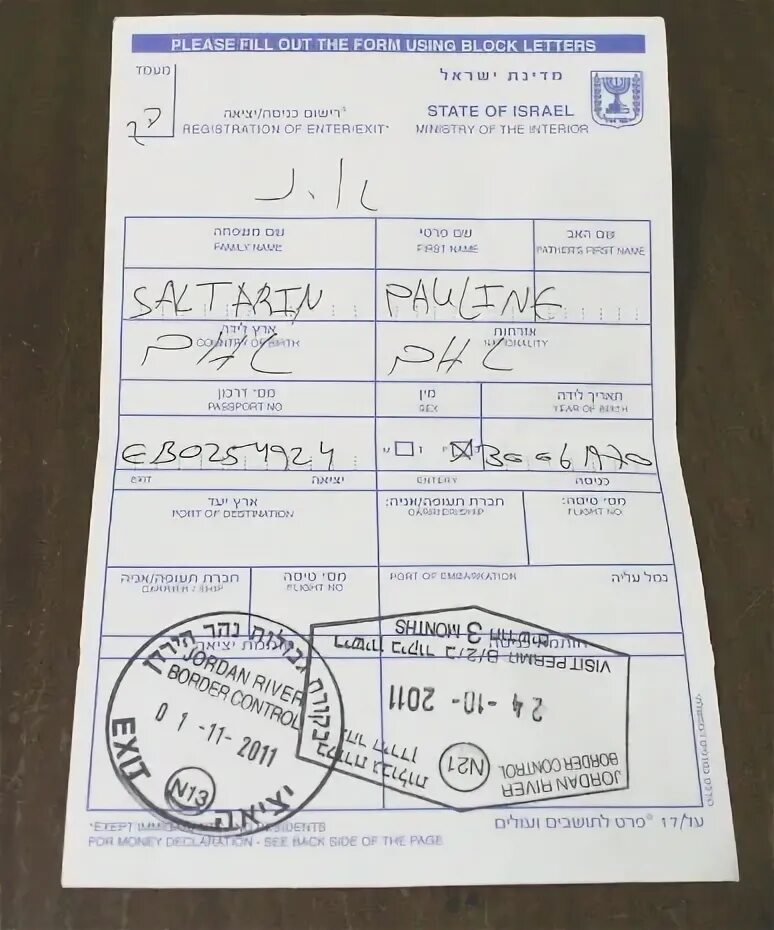 PLEASE FILL OUT THE FORM USING BLOCK LETTERS
מעמד
מדינת ישראל
רישום כניסה/יציאה*
STATE OF ISRAEL
REGISTRATION OF ENTER/EXIT*
MINISTRY OF THE INTERIOR
שם משפחה שם פרטי שם האב
FAMILY NAME FIRST NAME FATHER'S FIRST NAME
SALTARIN PAULINE
ארץ לידה אזרחות
COUNTRY OF BIRTH NATIONALITY
PHL PHL
מס׳ דרכון מין תאריך לידה
PASSPORT NO SEX YEAR OF BIRTH
EB0254924 30061970
EXIT יציאה ENTERY כניסה
ארץ יעד חברת תעופה/אניה: מס׳ טיסה:
PORT OF DESTINATION FLIGHT NO.
חברת תעופה/אניה מס׳ טיסה PORT OF EMBARKATION נמל עליה
FLIGHT NO
ביקורת גבולות נהר הירדן
JORDAN RIVER
BORDER CONTROL
01-11-2011
EXIT יציאה
N13
VISIT PERMIT B/2/ רישיון ביקור ב/2
3 MONTHS חודשים
24-10-2011
JORDAN RIVER
BORDER CONTROL
N21
ביקורת גבולות
נהר הירדן
עו/17 *פרט לתושבים ועולים
FOR MONEY DECLARATION - SEE BACK SIDE OF THE PAGE